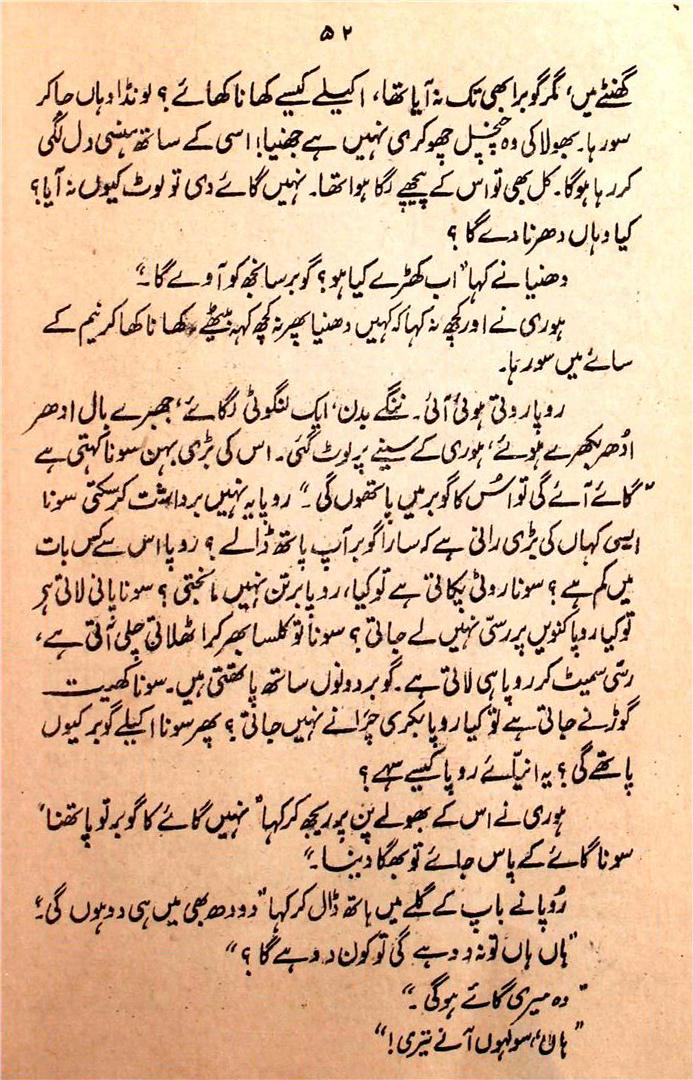 ۵۲
گھنٹے میں، مگر گوبر ابھی تک نہ آیا تھا، اکیلے کیسے کھانا کھائے؟ لونڈا وہاں جاکر
سو رہا۔ بھولا کی وہ چنچل چھوکری نہیں ہے جھنیا! اسی کے ساتھ ہنسی دل لگی
کر رہا ہوگا۔ کل بھی تو اس کے پیچھے لگا ہوا تھا۔ نہیں گائے دی تو لوٹ کیوں نہ آیا؟
کیا وہاں دھرنا دے گا؟
دھنیا نے کہا "اب کھڑے کیا ہو؟ گوبر سانجھ کو آوے گا۔"
ہوری نے اور کچھ نہ کہا کہ کہیں دھنیا پھر نہ کچھ کہہ بیٹھے۔ کھانا کھا کر نیم کے
سائے میں سو رہا۔
روپا روتی ہوئی آئی۔ ننگے بدن، ایک لنگوٹی لگائے، جھبرے بال ادھر
اُدھر بکھرے ہوئے، ہوری کے سینے پر لوٹ گئی۔ اس کی بڑی بہن سونا کہتی ہے
"گائے آئے گی تو اس کا گوبر میں پاتھوں گی۔" روپا یہ نہیں برداشت کرسکتی سونا
ایسی کہاں کی بڑی رانی ہے کہ سارا گوبر آپ پاتھ ڈالے؟ روپا اس سے کس بات
میں کم ہے؟ سونا روٹی پکاتی ہے تو کیا، روپا برتن نہیں مانجتی؟ سونا پانی لاتی ہر
تو کیا روپا کنویں پر رسّی نہیں لے جاتی؟ سونا تو کلسا بھر کر اٹھلاتی چلی آتی ہے،
رسّی سمیٹ کر روپا ہی لاتی ہے۔ گوبر دونوں ساتھ پاتھتی ہیں۔ سونا کھیت
گوڑنے جاتی ہے تو کیا روپا بکری چَرانے نہیں جاتی؟ پھر سونا اکیلے گوبر کیوں
پاتھے گی؟ یہ انیائے روپا کیسے سہے؟
ہوری نے اس کے بھولے پن پر ریجھ کر کہا "نہیں گائے کا گوبر تو پاتھنا،
سونا گائے کے پاس جائے تو بھگا دینا۔"
رُوپا نے باپ کے گلے میں ہاتھ ڈال کر کہا "دودھ بھی میں ہی دوہوں گی۔"
"ہاں ہاں تو نہ دوہے گی تو کون دوہے گا؟"
"وہ میری گائے ہوگی۔"
"ہاں، سولہوں آنے تیری!"